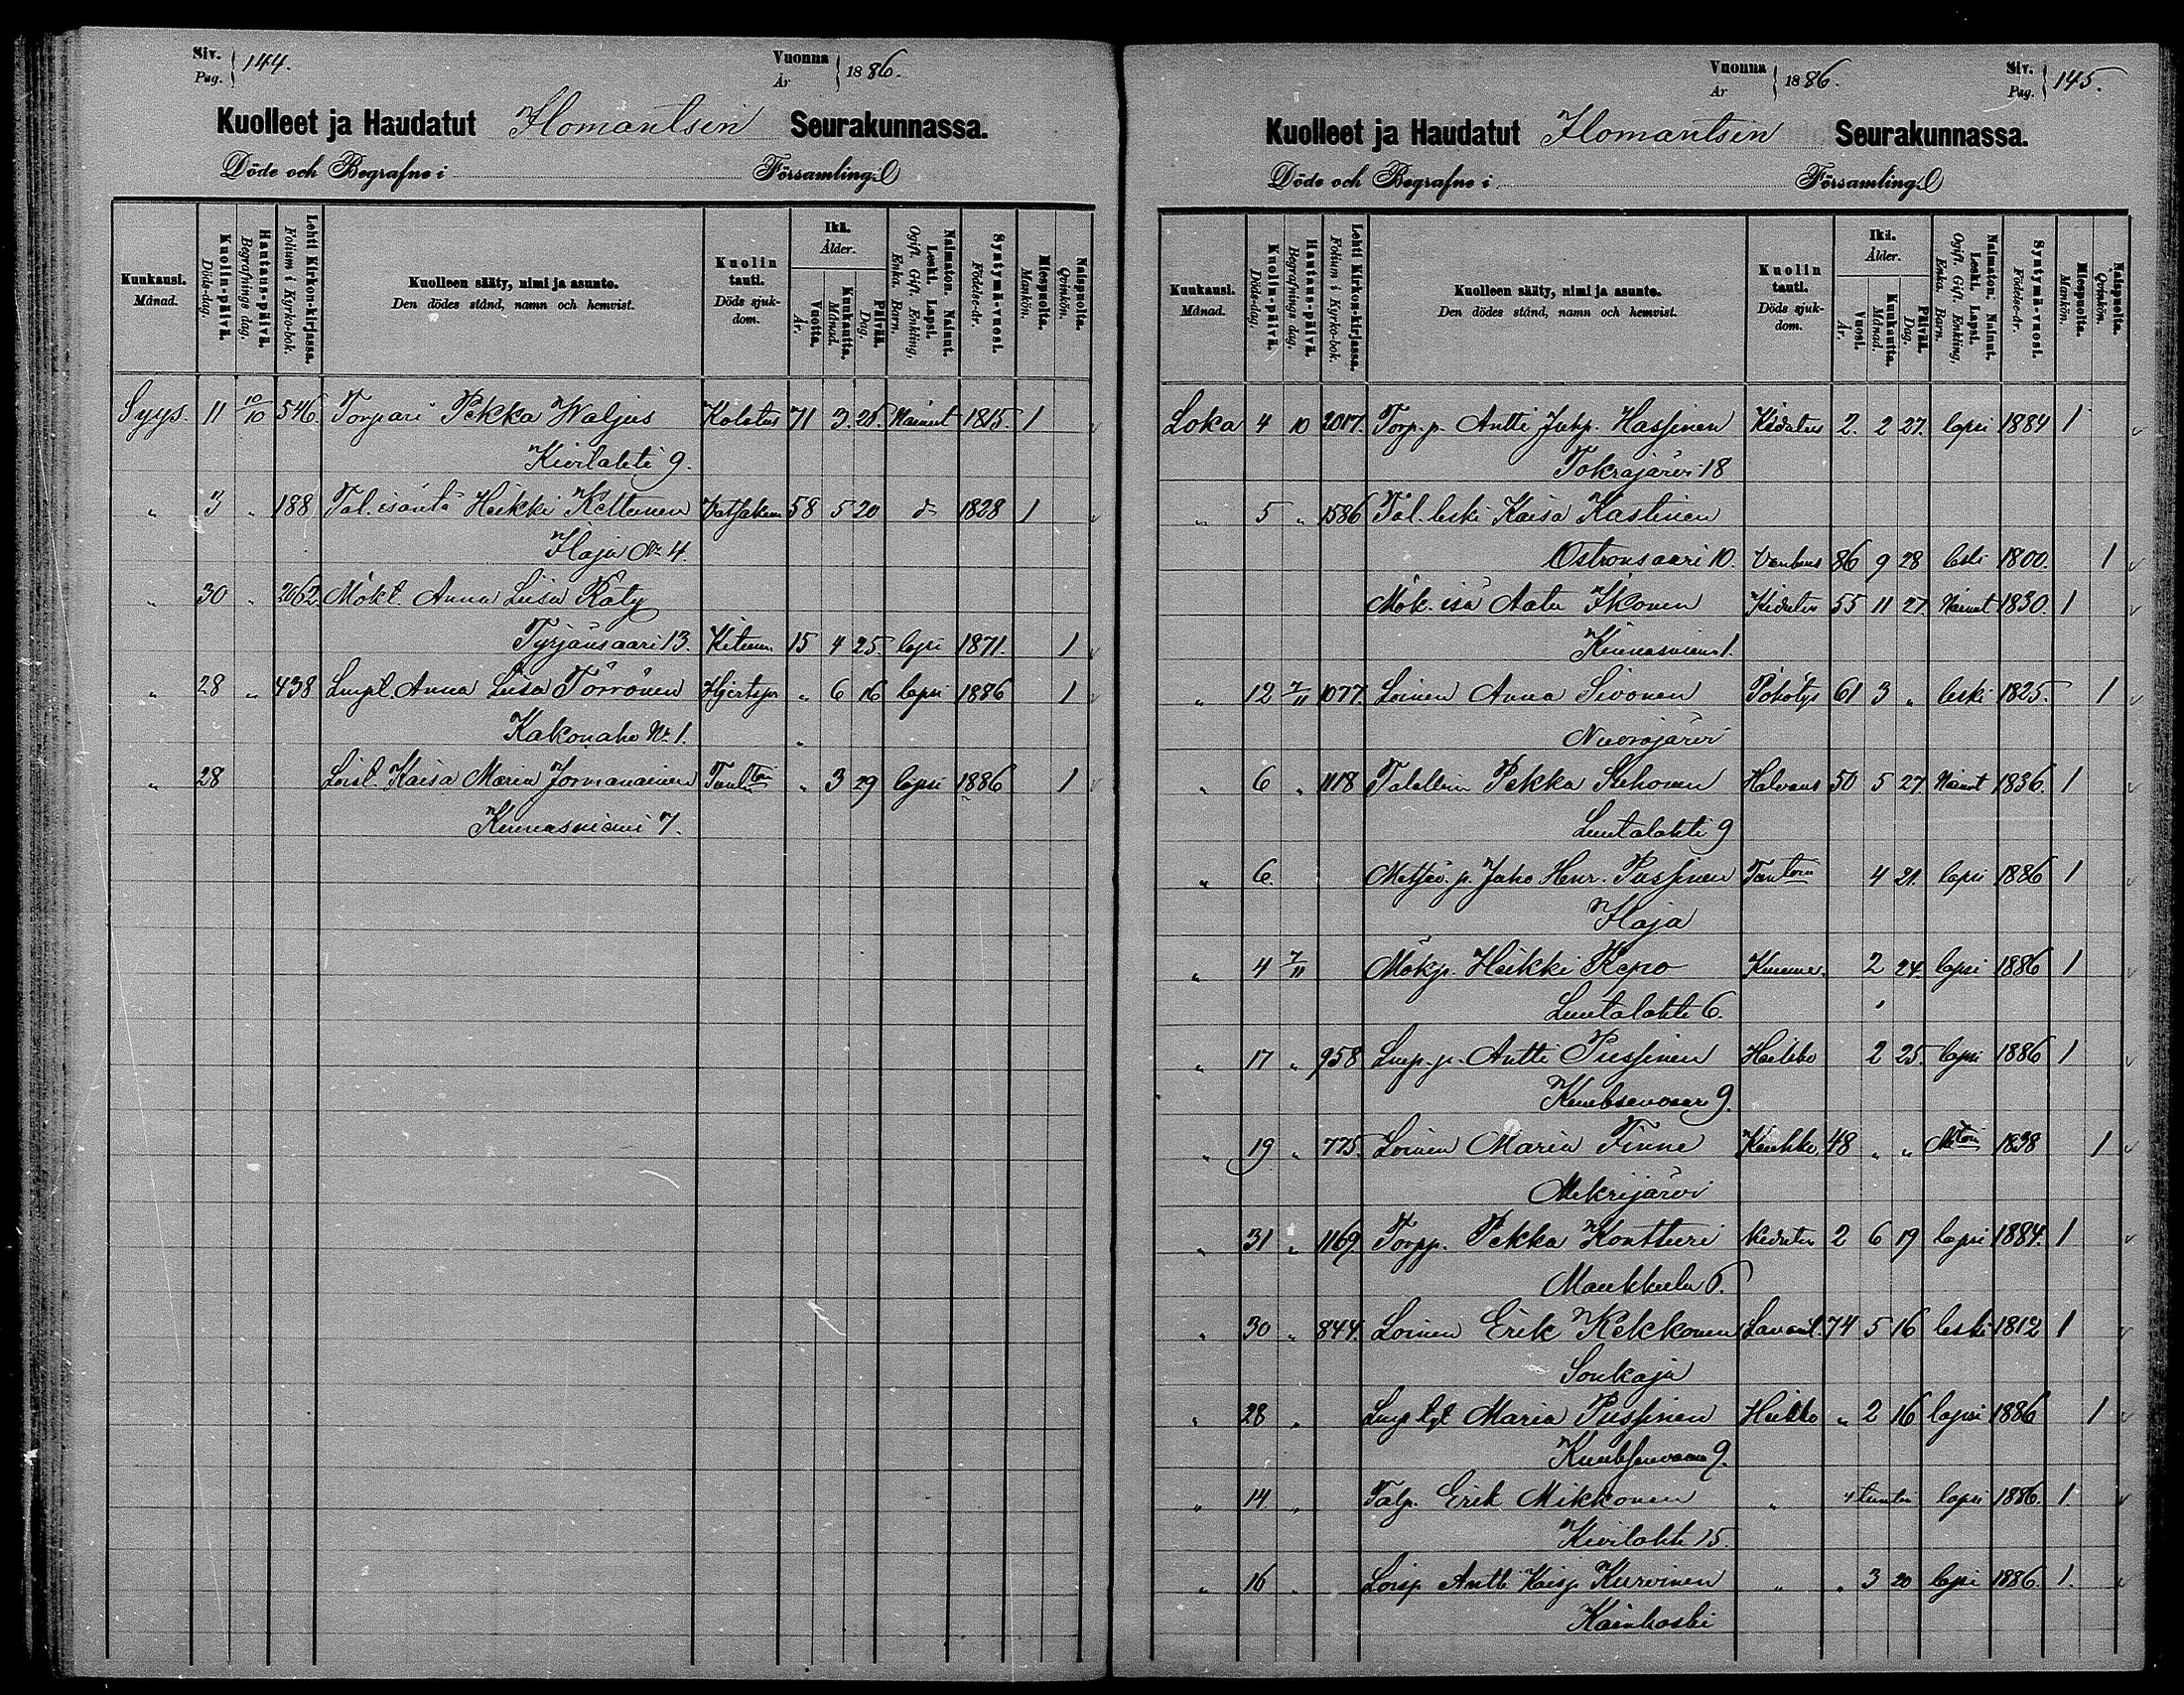 Siv. Pag. 144.
Vuonna År 1886.
Kuolleet ja Haudatut Ilomantsin Seurakunnassa.
Döde och Begrafne i Församling.
Kuukausi. Månad.
Kuolin-päivä. Döds-dag.
Hautaus-päivä. Begrafnings dag.
Lehti Kirkon-kirjassa. Folium i Kyrko-bok.
Kuolleen sääty, nimi ja asunto. Den dödes stånd, namn och hemvist.
Kuolin tauti. Döds sjuk-dom.
Ikä. Ålder.
Vuotta. År.
Kuukautta. Månad.
Päivää. Dag.
Naimaton. Nainut. Leski. Lapsi. Ogift. Gift. Enkling. Enka. Barn.
Syntymä-vuosi. Födelse-år.
Miespuolta. Mankön.
Naispuolta. Qvinkön.
Syys. 11 10/10 546. Torpari Pekka Waljus Kolotus 71 3 25. Nainut 1815. 1
Kivilahti 9.
" 3 " 188 Tal. isäntä Heikki Kettunen 58 5 20 1828 1
Ilaja № 4.
" 30 " 262 Mökt. Anna Liisa Räty
Tyrjänsaari 13. 15 4 25. lapsi 1871. 1
" 28 " 438 Lmpt. Anna Liisa Törrönen " 6 16 lapsi 1886 1
Kakonaho Nr. 1.
" 28 Loist. Kaisa Maria Jormanainen " 3 29 lapsi 1886 1
Kinnasniemi 7.
Vuonna År 1886.
Siv. Pag. 145.
Kuolleet ja Haudatut Ilomantsin Seurakunnassa.
Döde och Begrafne i Församling.
Kuukausi. Månad.
Kuolin-päivä. Döds-dag.
Hautaus-päivä. Begrafnings dag.
Lehti Kirkon-kirjassa. Folium i Kyrko-bok.
Kuolleen sääty, nimi ja asunto. Den dödes stånd, namn och hemvist.
Kuolin tauti. Döds sjuk-dom.
Ikä. Ålder.
Vuosi. År.
Kuukautta. Månad.
Päivää. Dag.
Naimaton. Nainut. Leski. Lapsi. Ogift. Gift. Enkling. Enka. Barn.
Syntymä-vuosi. Födelse-år.
Miespuolta. Mankön.
Naispuolta. Qvinkön.
Loka 4 10 2017. Torp. p. Antti Juhp. Hassinen Kidutus 2. 2 27. lapsi 1884 1
Tokrajärvi 18
" 5 " 1586 Tal. leski Kaisa Kastinen
Ostronsaari 10. Vanhuus 86 9 28 leski 1800. 1
Mök. isä Aatu Ikonen Kidutus 55 11 27. Nainut 1830. 1
Kinnasniemi 1.
" 12 7/11 1077. Loinen Anna Sivonen Pöhötys 61 3 " leski 1825. 1
Nuorajärvi
" 6 " 1118 Talollinen Pekka Halvaus 50 5 27 Nainut 1836. 1
Luutalahti 9
" 6. p. Juho Henr. Pussinen 4 21. lapsi 1886 1
Ilaja
" 4 7/11 Mökp. Heikki Repo 2 24. lapsi 1886 1
Luutalahti 6.
" 17 " 958 Lmp. p. Antti Pussinen Heikko 2 25. lapsi 1886 1
Kuuksenvaara 9.
" 19 " 775. Loinen Maria Tinne Keuhko 48 " " 1838 1
Mekrijärvi
" 31 " 1169 Torpp. Pekka Kontturi Kidutus 2 6 19 lapsi 1884. 1
Maukkula 6.
" 30 " 844. Loinen Erik Kekkonen Lavant. 74 5 16 leski 1812 1
Sonkaja
" 28 " Lmp tyt Maria Pussinen Heikko " 2 16 lapsi 1886 1
Kuuksenvaara 9.
" 14 " Talp. Erik Mikkonen " 4 tuntia lapsi 1886. 1.
Kivilahti 15.
" 16 " Loisp. Antti Kaisp. Kurvinen " " 3 20 lapsi 1886. 1.